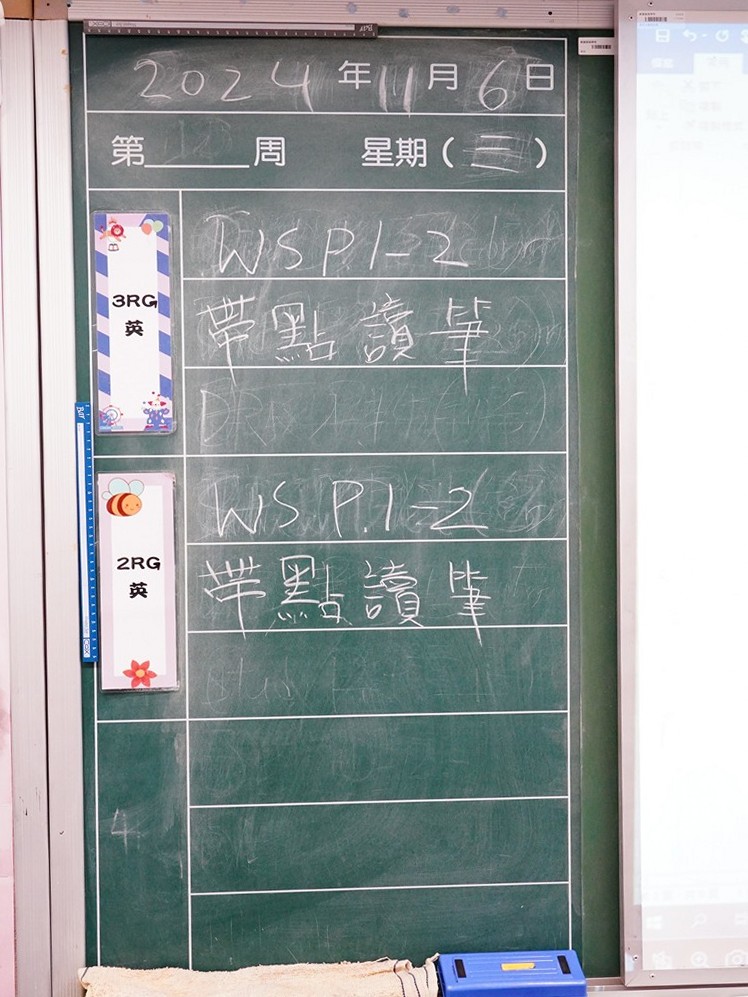 2024年11月6日
第____周 星期（三）
3RG
英
WS P.1-2
帶點讀筆
2RG
英
WS P.1-2
帶點讀筆
4